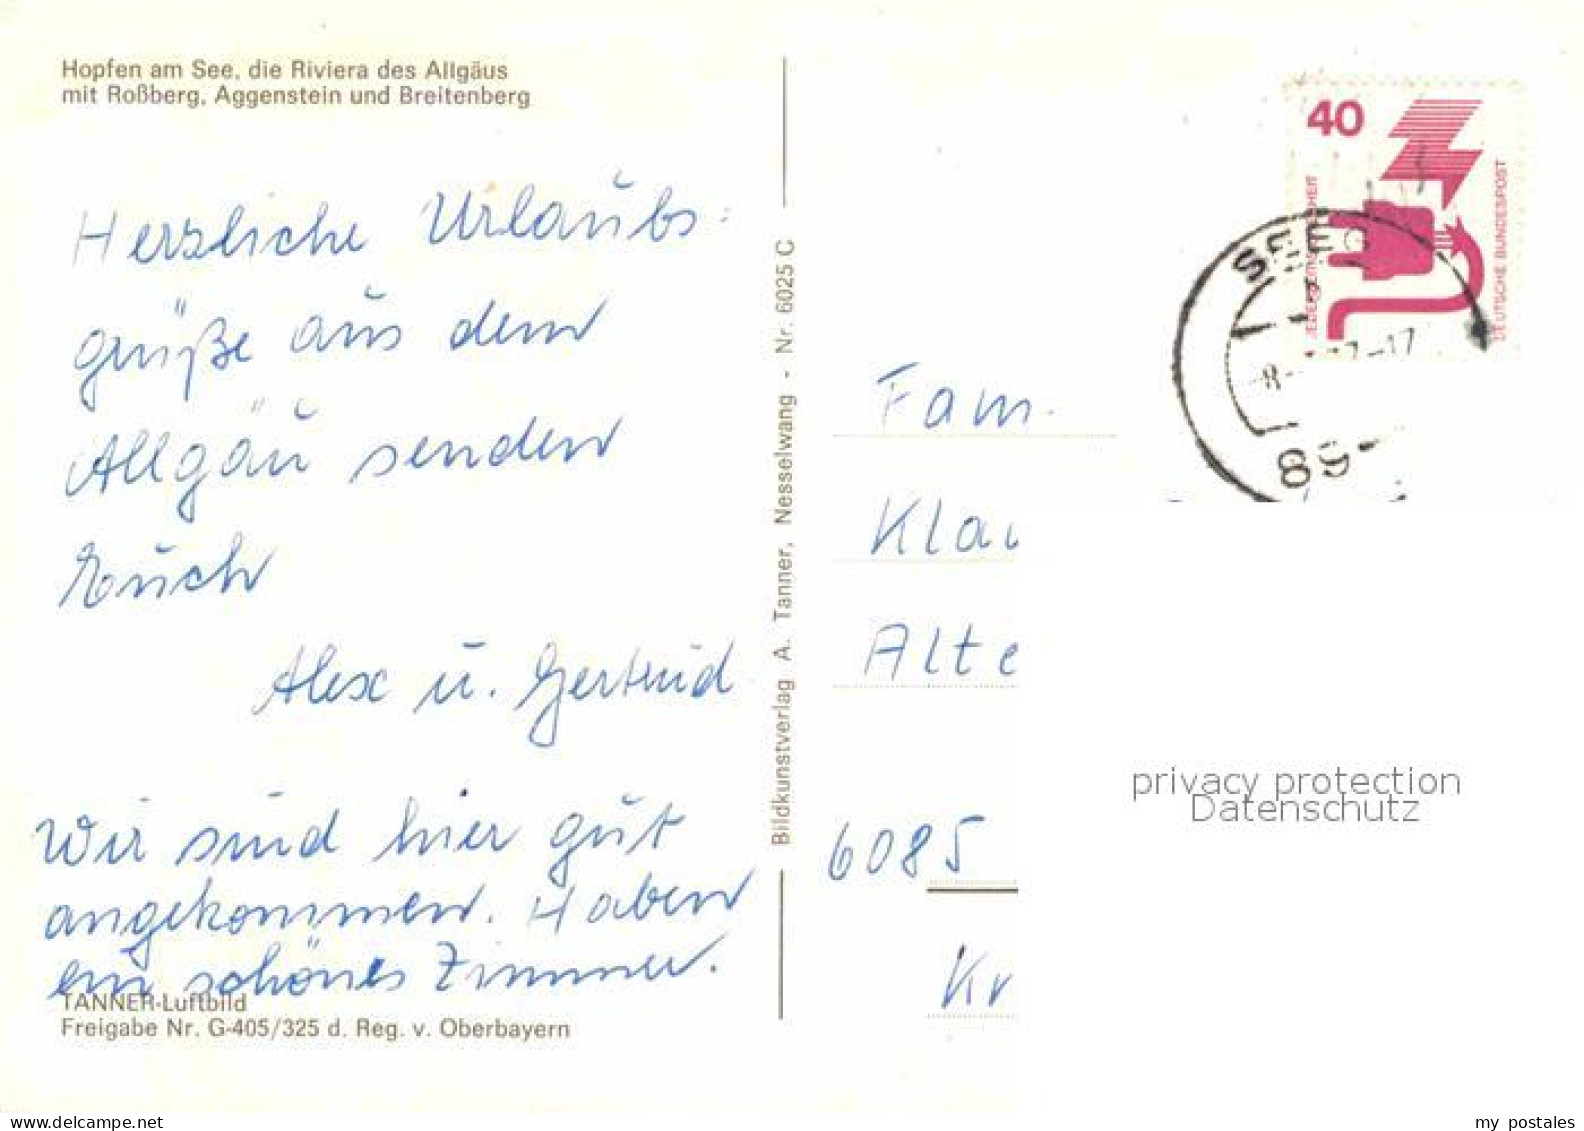 Hopfen am See, die Riviera des Allgäus
mit Roßberg, Aggenstein und Breitenberg
Herzliche Urlaubs-
grüße aus dem
Allgäu senden
Euch
Alex u. Gertrud
Wir sind hier gut
angekommen. Haben
ein schönes Zimmer.
TANNER-Luftbild
Freigabe Nr. G-405/325 d. Reg. v. Oberbayern
Bildkunstverlag A. Tanner, Nesselwang - Nr. 6025 C
40
DEUTSCHE BUNDESPOST
SEEG
89
Fam.
Alte
6085
Kr
privacy protection
Datenschutz
my postales
delcampe.net